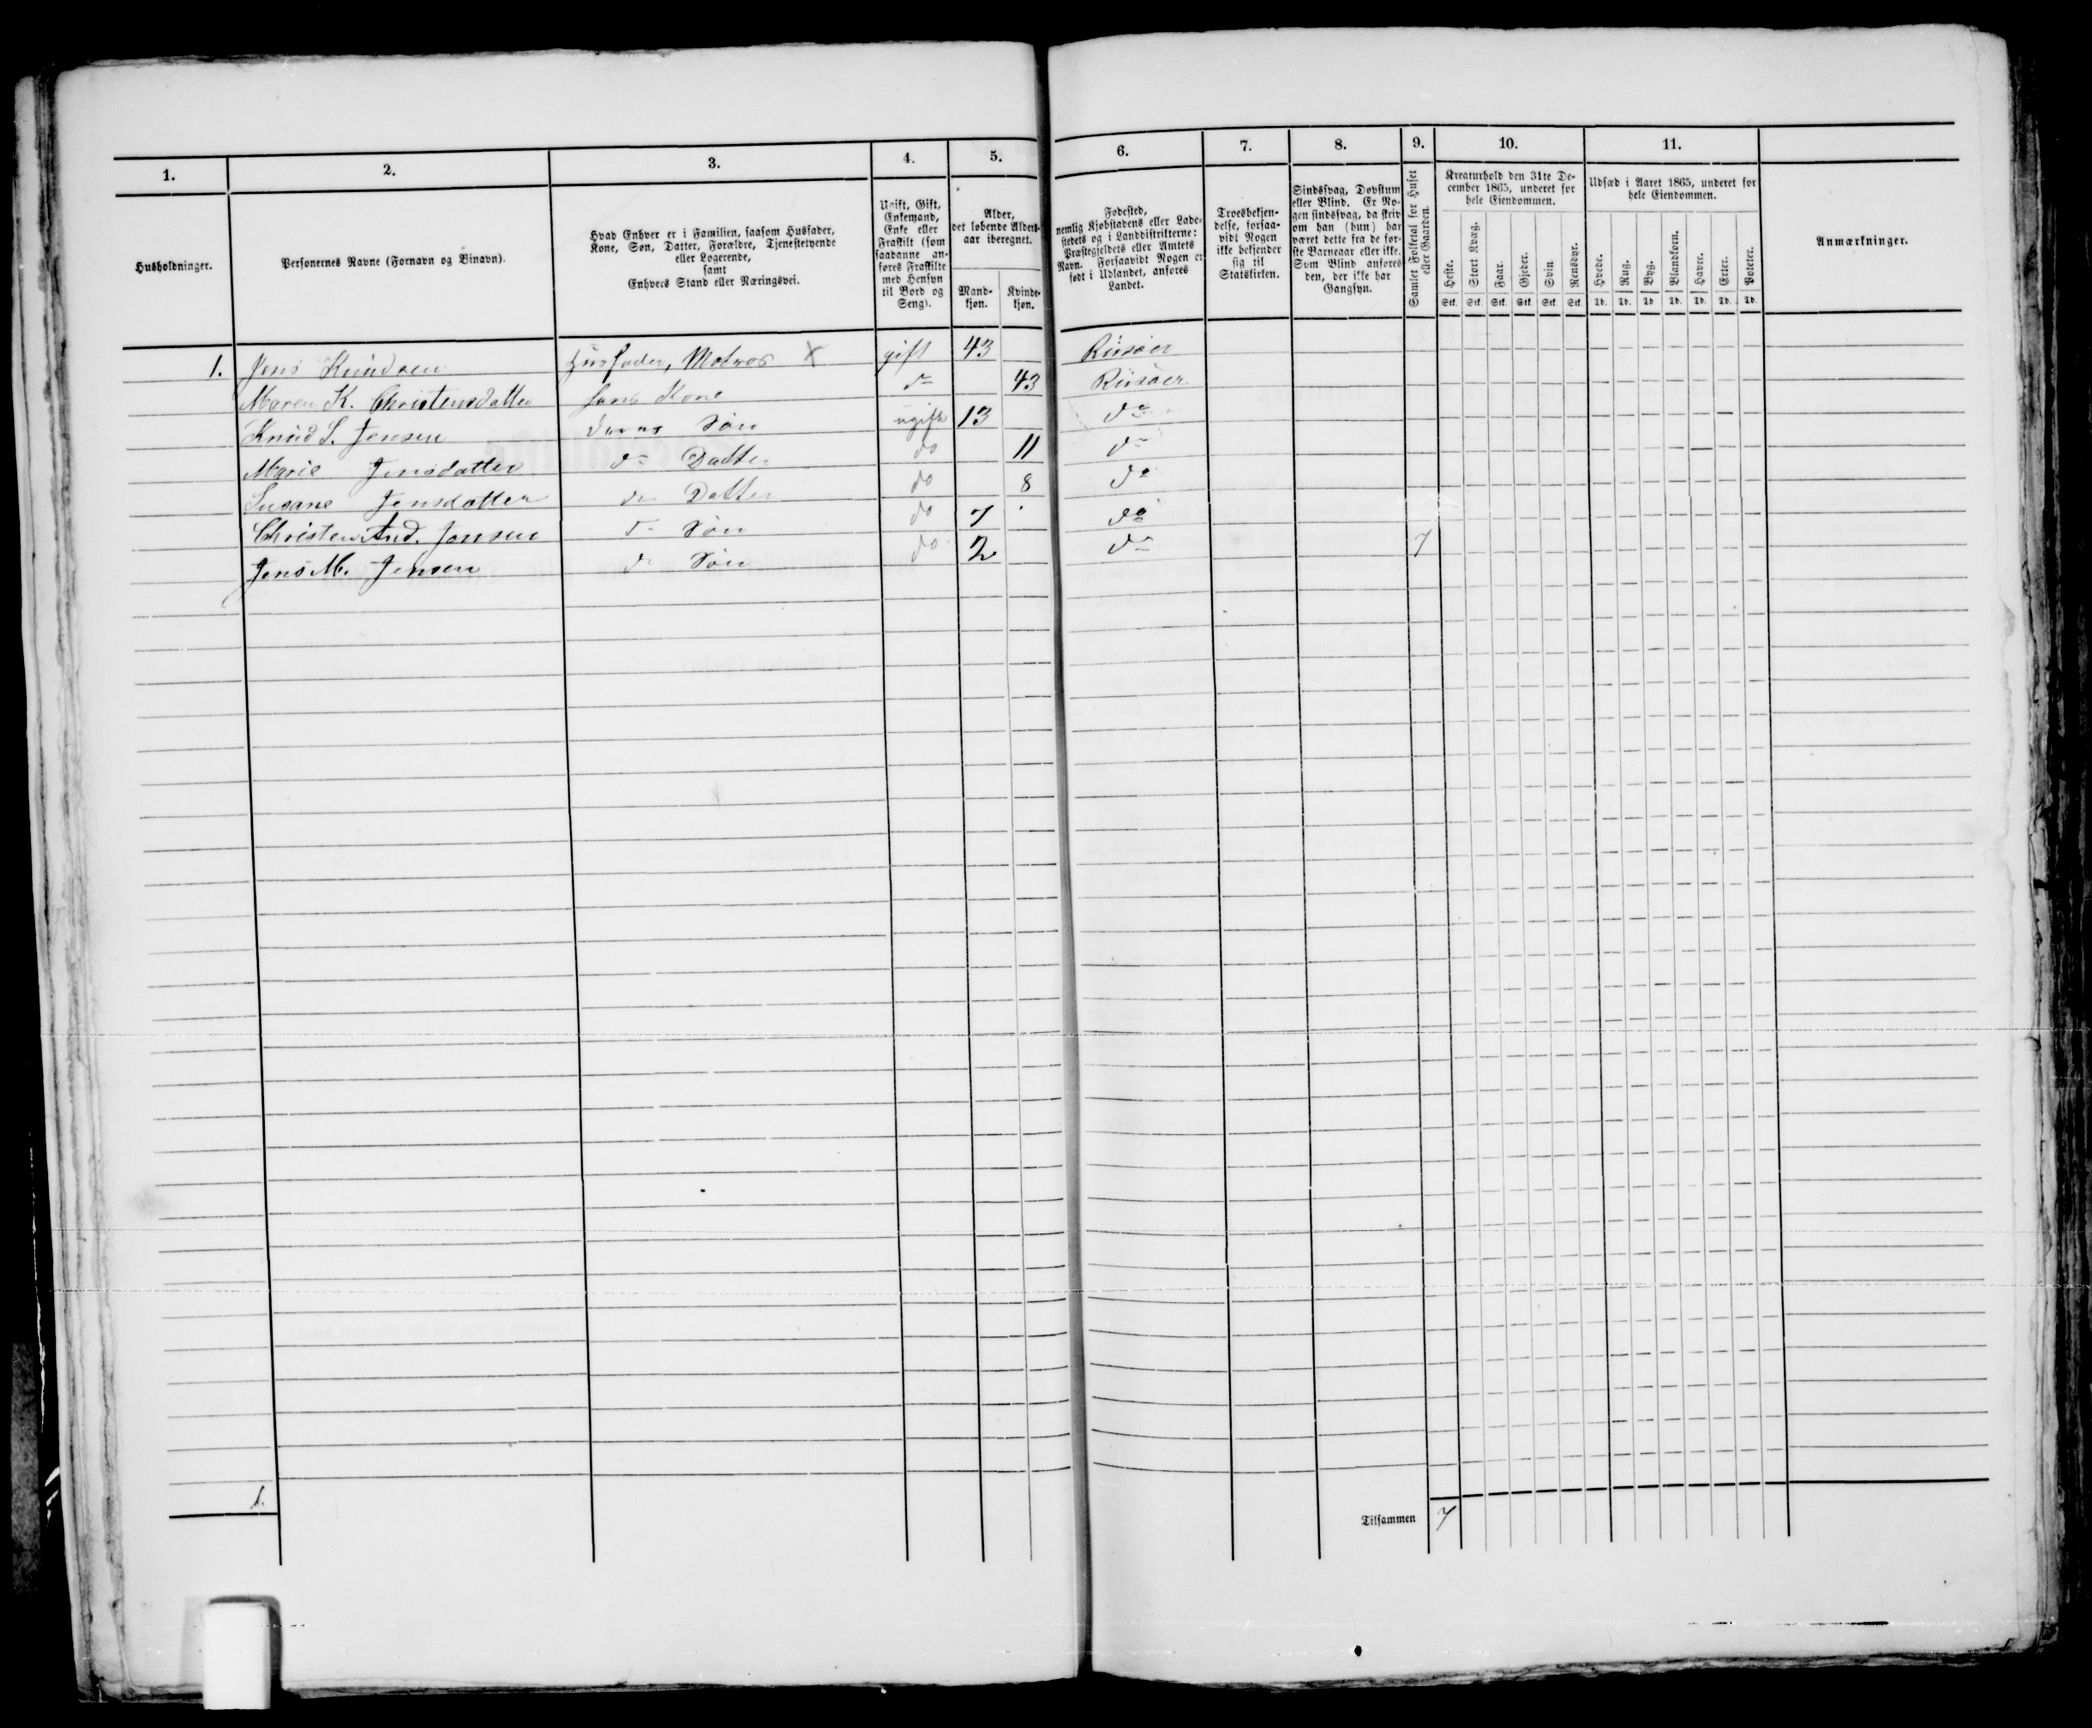 1. 2. 3. 4. 5. 6. 7. 8. 9. 10. 11.
Husholdninger.
Personernes Navne (Fornavn og Binavn).
Hvad Enhver er i Familien, saasom Husfader,
Kone, Søn, Datter, Forældre, Tjenestetyende
eller Logerende,
samt
Enhvers Stand eller Næringsvei.
Ugift, Gift,
Enkemand,
Enke eller
Fraskilt (som
saadanne an-
føres Fraskilte
med Hensyn
til Bord og
Seng).
Alder,
det løbende Alders-
aar iberegnet.
Mand-
kjøn.
Kvinde-
kjøn.
Fødested,
nemlig Kjøbstadens eller Lade-
stedets og i Landdistrikterne:
Præstegjeldets eller Amtets
Navn. Forsaavidt Nogen er
født i Udlandet, anføres
Landet.
Troesbekjen-
delse, forsaa-
vidt Nogen
ikke bekjender
sig til
Statskirken.
Sindssvag, Døvstum
eller Blind. Er No-
gen sindssvag, da skriv
om han (hun) har
været dette fra de før-
ste Barneaar eller ikke.
Som Blind anføres
den, der ikke har
Gangsyn.
Samlet Folketal for Huset
eller Gaarden.
Kreaturhold den 31te De-
cember 1865, underet for
hele Eiendommen.
Heste. Stort Kvæg. Faar. Gjeder. Svin. Rensdyr.
Stk. Stk. Stk. Stk. Stk. Stk.
Udsæd i Aaret 1865, underet for
hele Eiendommen.
Hvede. Rug. Byg. Blandkorn. Havre. Erter. Poteter.
Td. Td. Td Td. Td. Td. Td.
Anmærkninger.
1. Jens Knudsen Husfader, Matros x gift 43 Riisøer
Maren K. Christensdatter hans Kone do 43 Riisøer
Knud S. Jensen deres Søn ugift 13 do
Marie Jensdatter do Datter do 11 do
Susane Jensdatter do Datter do 8 do
Christen And. Jensen do Søn do 7 do
Jens M. Jensen do Søn do 2 do 7
1.
Tilsammen 7